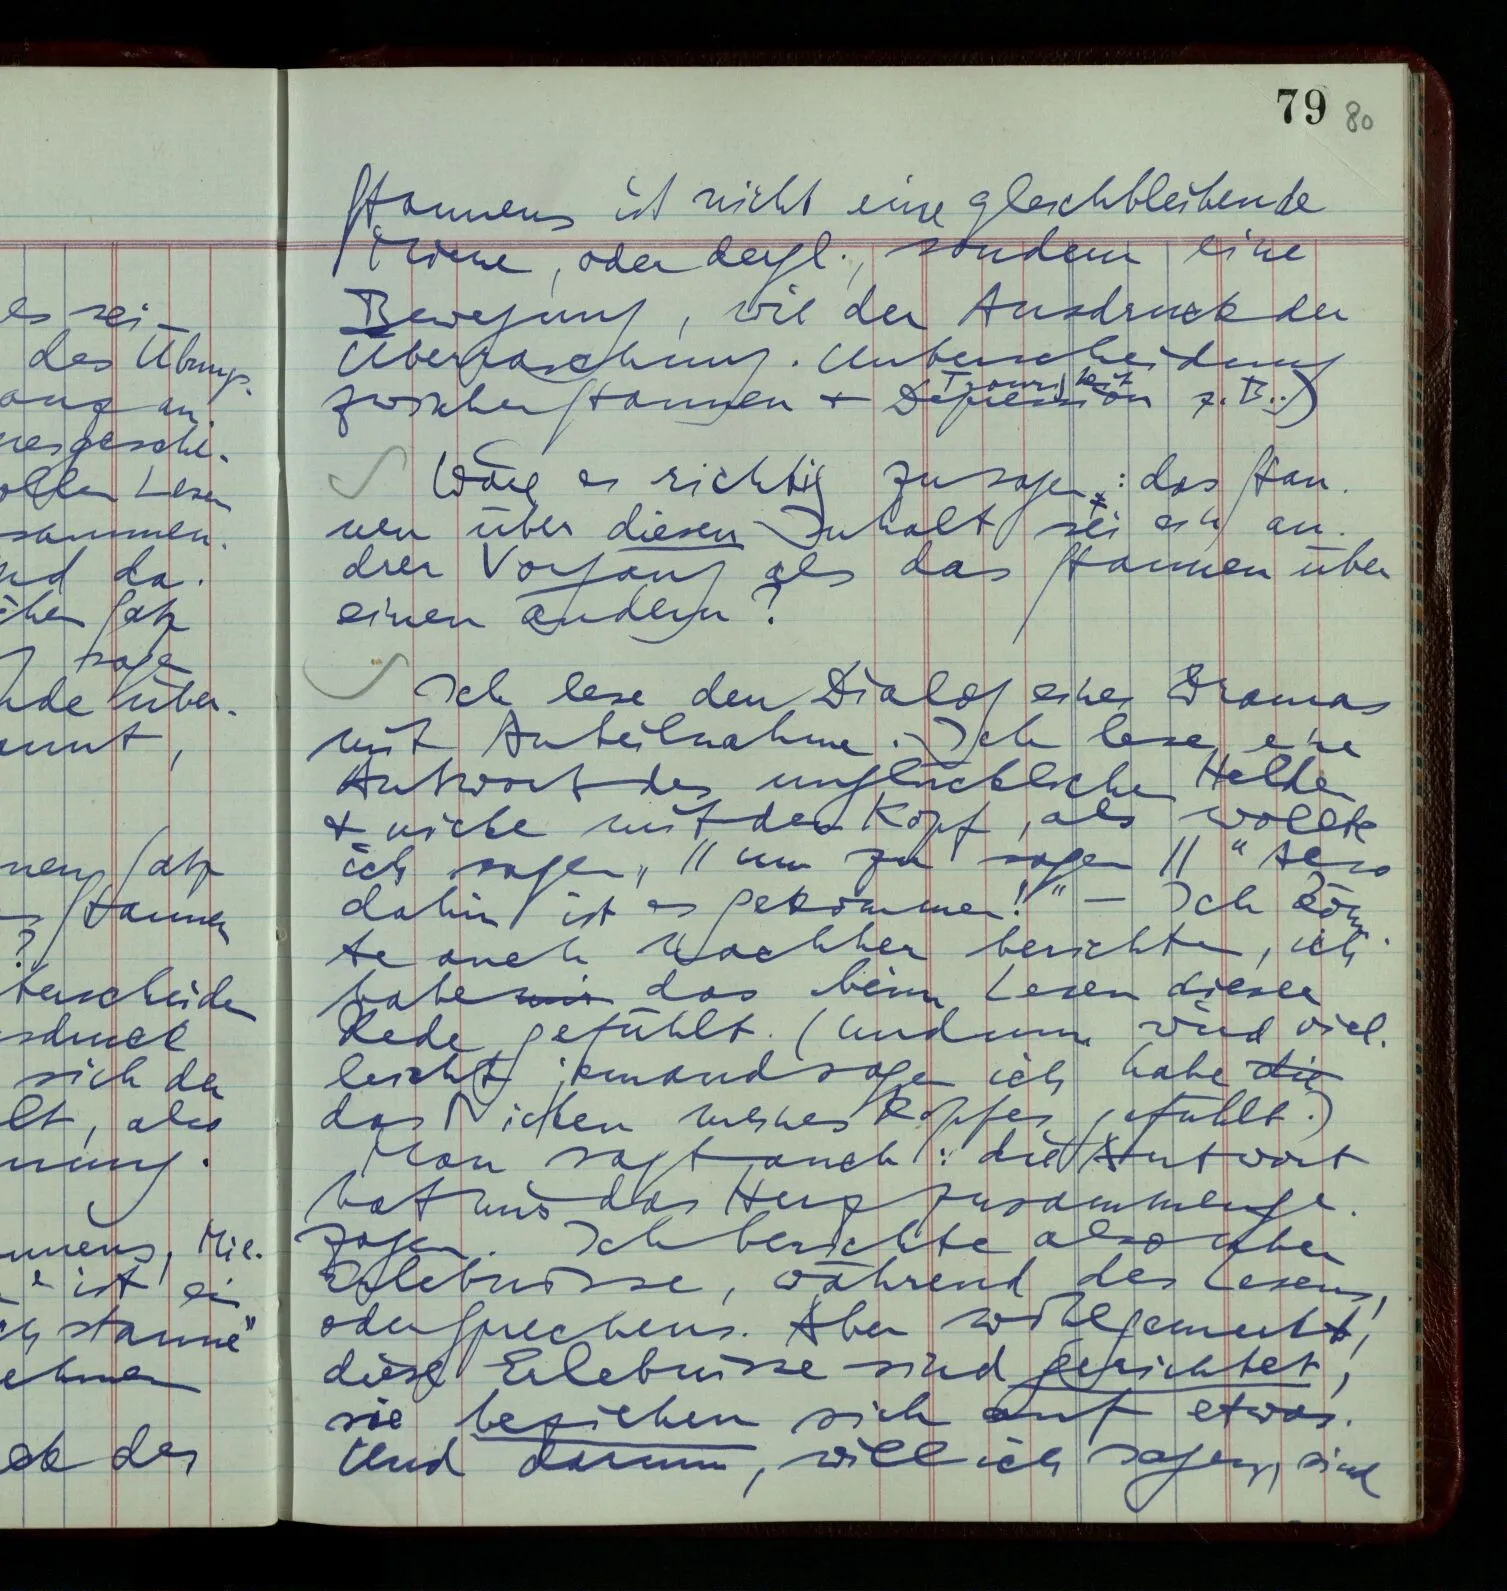 es sei
des Übungs-
ang an
nesgeschi-
ollen Lesen
sammen.
nd da.
chen Satz
sage
nde über-
annt,
nen Satz
Staunen
?
terscheiden
sdruck
sich der
lt, also
nung.
unens, Mie-
" ist ein
ch staune"
ehmen
ck des
79 80
Staunens ist nicht eine gleichbleibende
Miene, oder dergl., sondern eine
Bewegung, wie der Ausdruck der
Überraschung. Unterscheidung
zwischen Staunen + Depression Traurigkeit z.B..)
Wäre es richtig zu sagen: das Stau-
nen über diesen Inhalt sei ein an-
drer Vorgang als das Staunen über
einen andern?
Ich lese den Dialog eines Dramas
mit Anteilnahme. Ich lese eine
Antwort des unglücklichen Helden
+ nicke mit dem Kopf, als wollte
ich sagen, // um zu sagen // "Also
dahin ist es gekommen!" – Ich könn-
te auch nachher berichten, ich
habe mir das beim Lesen dieser
Rede gefühlt. (Und nun wird viel-
leicht jemand sagen ich habe die
das Nicken meines Kopfes gefühlt.)
Man sagt auch: die Antwort
hat mir das Herz zusammenge-
zogen. Ich berichte also über
Erlebnisse, während des Lesens,
oder Sprechens. Aber wohlgemerkt,
diese Erlebnisse sind gerichtet,
sie beziehen sich auf etwas.
Und darum, will ich sagen, sind